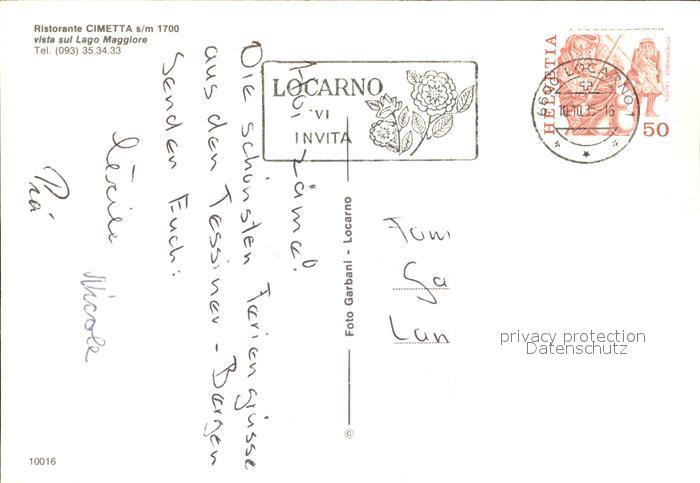 Ristorante CIMETTA s/m 1700
vista sul Lago Maggiore
Tel. (093) 35.34.33
LOCARNO
VI
INVITA
6600 LOCARNO 1
10.10.85-16
HELVETIA
50
Hoi zäme!
Die schönsten Feriengrüsse
aus den Tessiner-Bergen
senden Euch:
Cécile
Nicole
Pia
Foto Garbani - Locarno
©
Fam
Ga
Lan
privacy protection
Datenschutz
10016